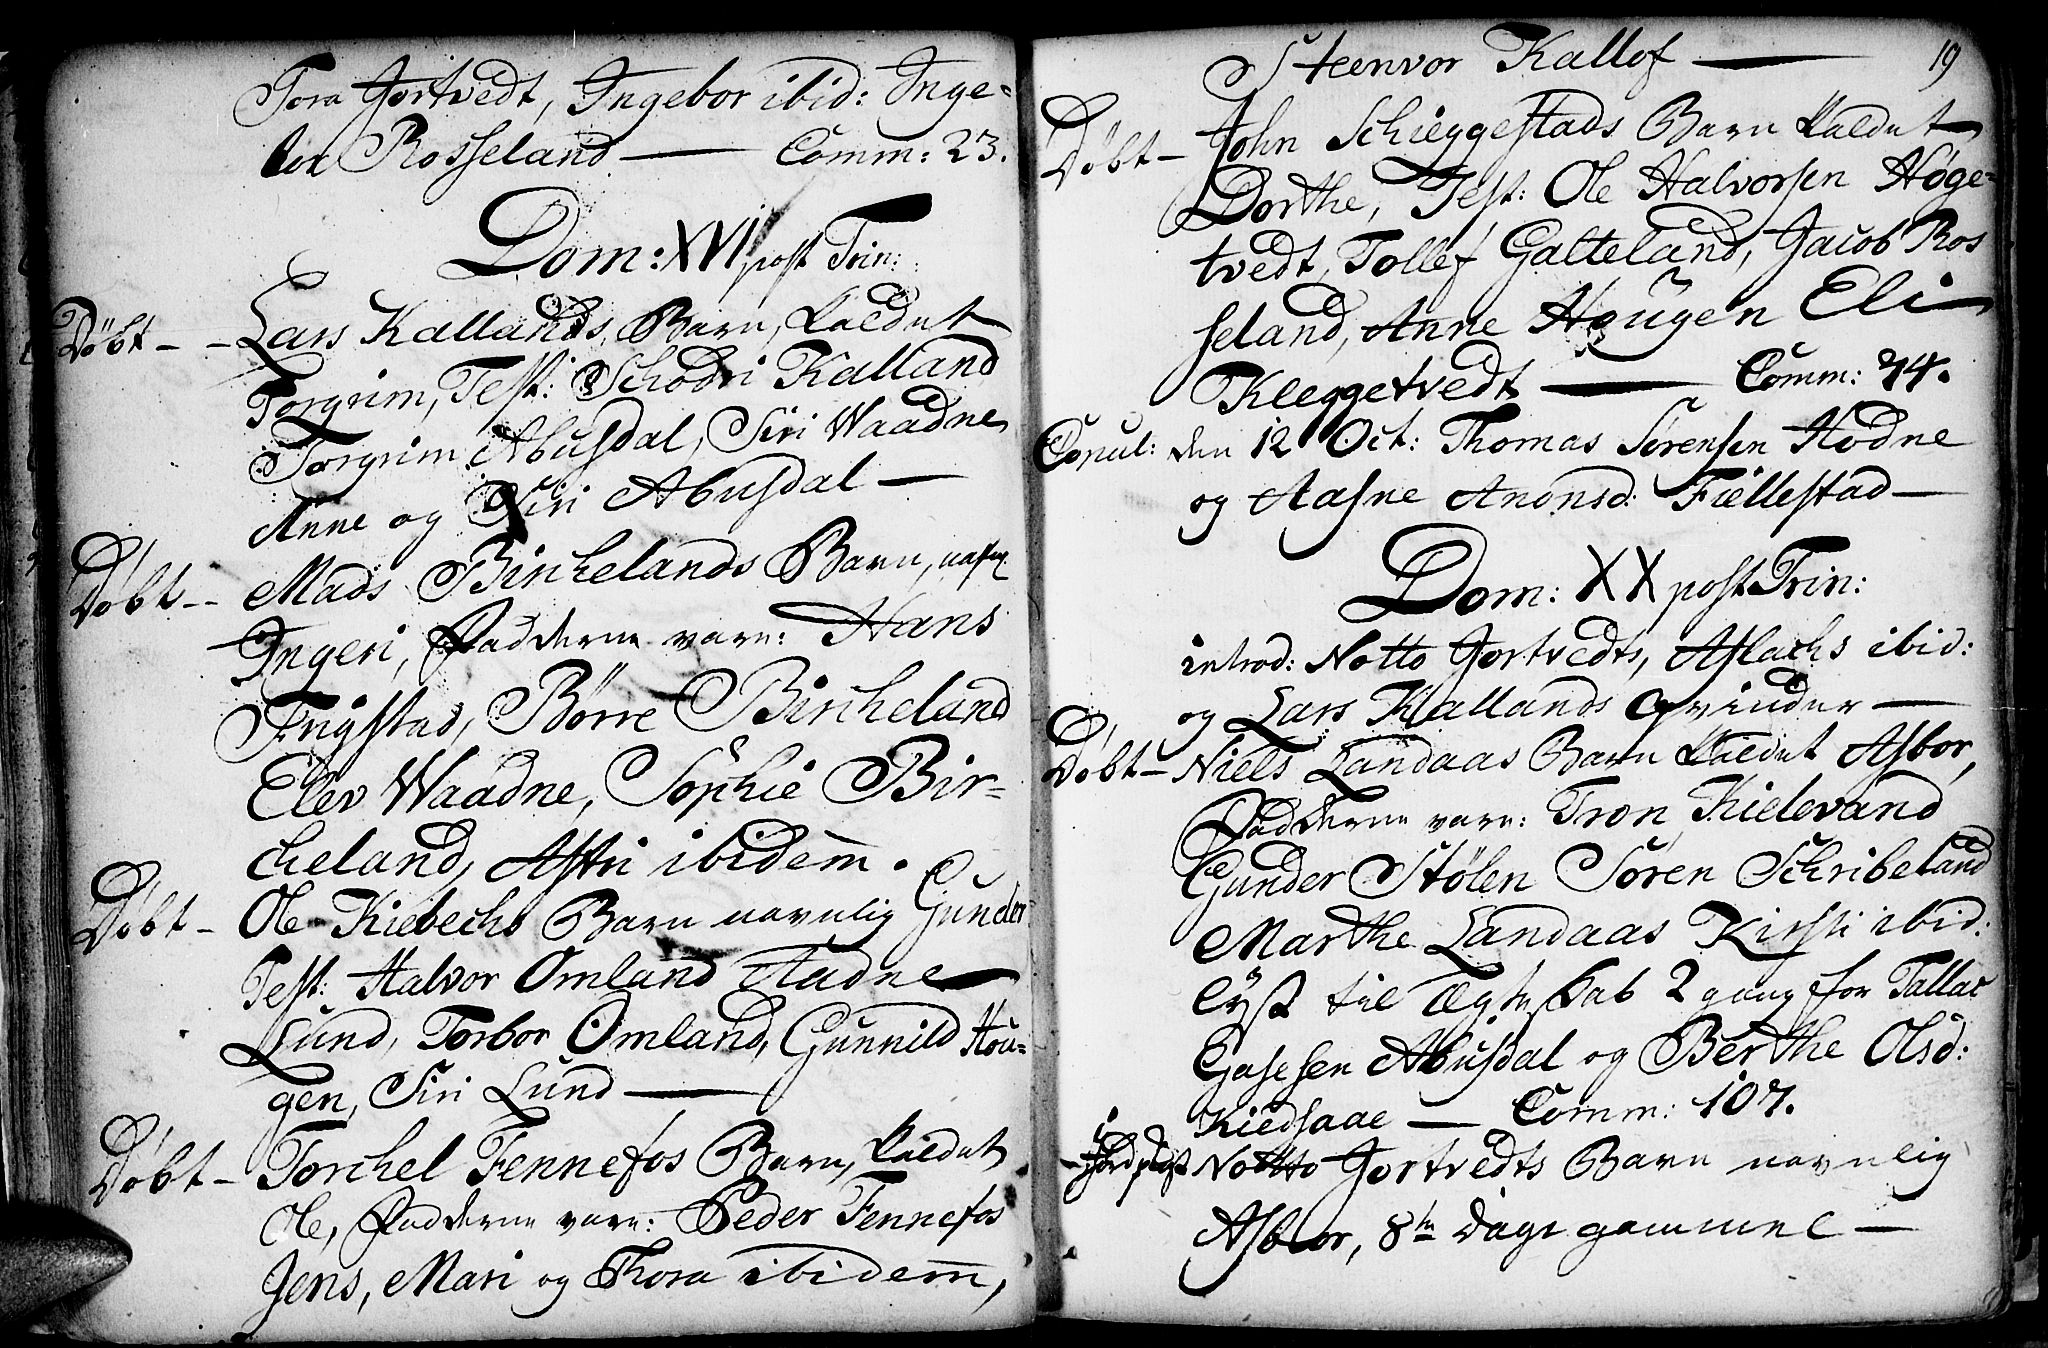 Tora Gortvedt, Ingebor ibid: Inge-
bor Rosseland — Comm: 23.
Dom: XVI post Trin:
Döbt - - Lars Kallands Barn, kaldet
Torgrim, Test: Schodri Kalland
Torgrim Abusdal, Siri Waadne
Anne og Siri Abusdal —
Döbt - - Mads Birchelands Barn,
Ingeri, Fadderne vare: Hans
Trigstad, Börre Bircheland
Elev Waadne, Sophie Bir-
cheland, Astri ibidem.
Döbt - Ole Kiebechs Barn navnlig Gunder
Test: Halvor Omland Aadne
Lund, Torbor Omland, Gunnild Hou-
gen, Siri Lund —
Döbt - Torchel Fennefos Barn, kaldet
Ole, Fadderne vare: Peder Fennefos
Jens, Mari og Thora ibidem,
19
Steenvor Kallof —
Döbt - John Schieggestads Barn kaldet
Dorthe, Test: Ole Halvorsen Høge-
tvedt, Tollef Galteland, Jacob Ros
seland, Anne Hougen Eli
Kleggetvedt — Comm: 74.
Copul: den 12 Oct: Thomas Sörensen Hodne
og Aasne Anonsd: Fiellestad —
Dom: XX post Trin:
introd: Notto Gortvedts, Aslachs ibid:
og Lars Kallands qvinder —
Döbt - Niels Landaas Barn kaldet Asbor,
Fadderne vare: Tron Kielevand
Gunder Stølen Søren Schribeland
Marthe Landaas Kirsti ibid:
lyst til Ægteskab 2 gang for Tallac
Gasesen Abusdal og Berthe Olsd:
Kiedsaae — Comm: 107.
Jordpaast Notto Gortvedts Barn navnlig
Asbior, 8te Dage gammel —